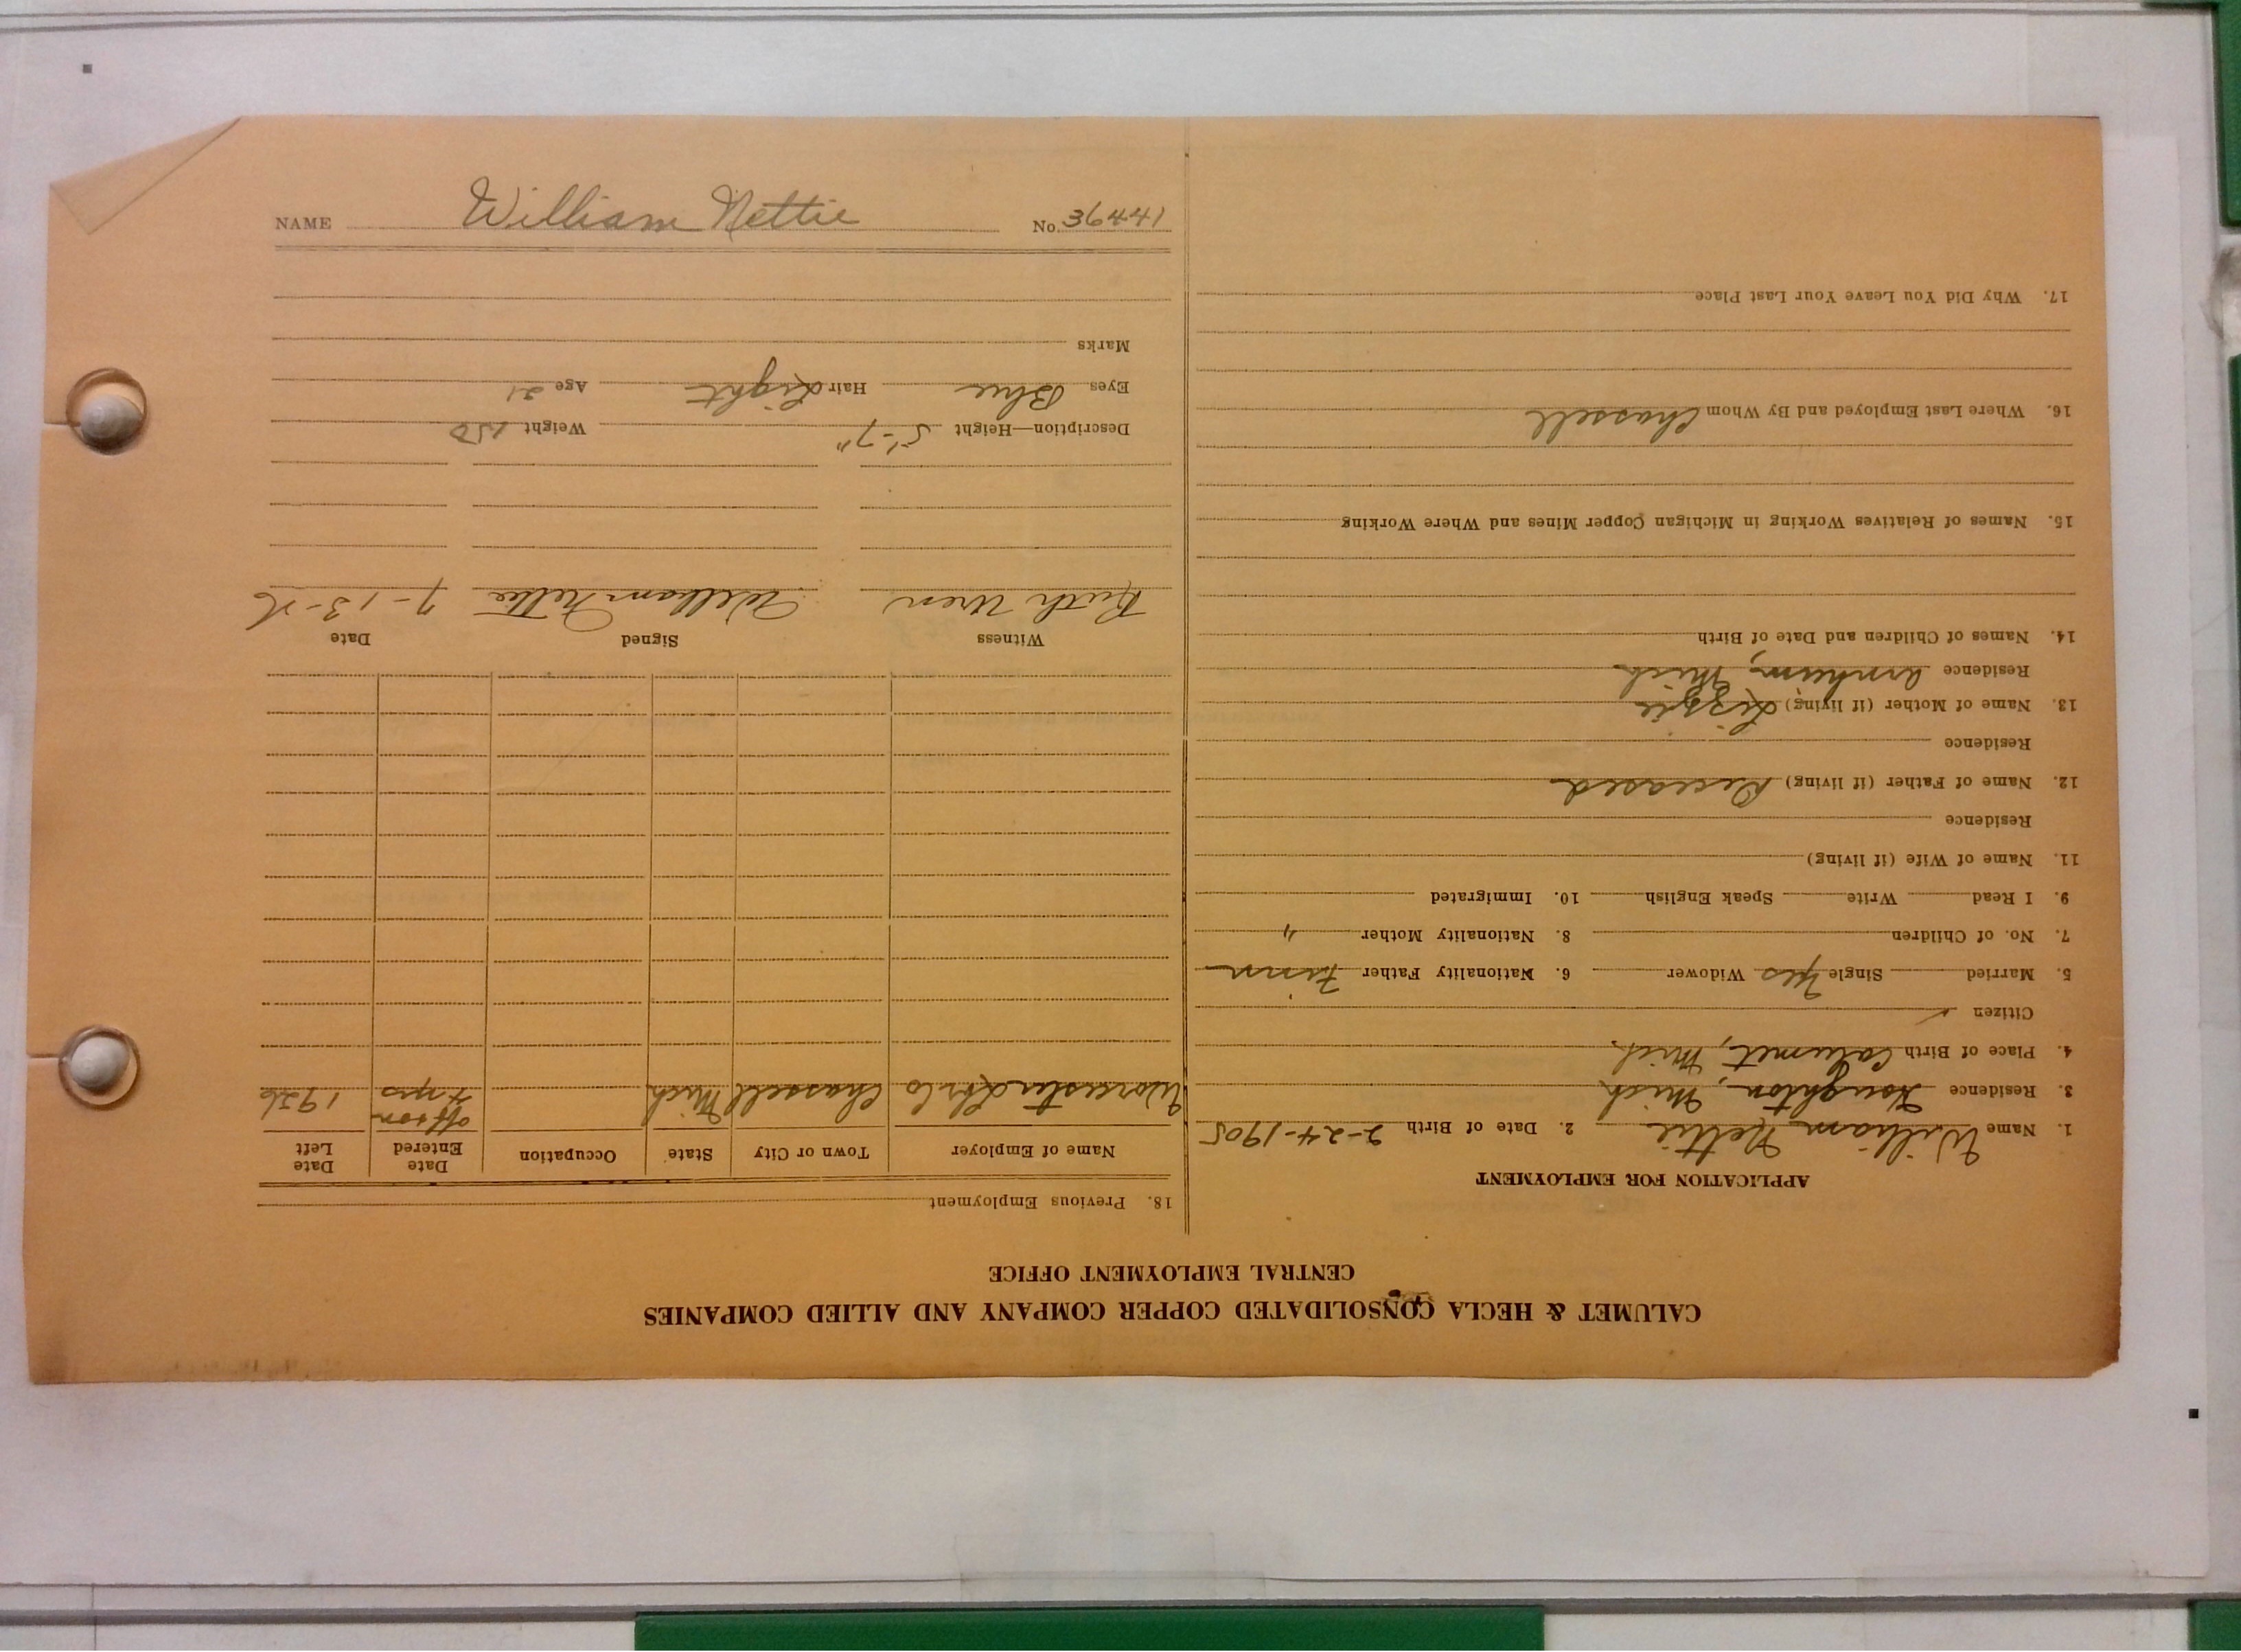 CALUMET & HECLA CONSOLIDATED COPPER COMPANY AND ALLIED COMPANIES
CENTRAL EMPLOYMENT OFFICE
APPLICATION FOR EMPLOYMENT
1. Name William Nettie 2. Date of Birth 2-24-1905
3. Residence Houghton, Mich
4. Place of Birth Calumet, Mich.
Citizen ✓
5. Married Single Yes Widower 6. Nationality Father Finn
7. No. of Children 8. Nationality Mother "
9. I Read Write Speak English 10. Immigrated
11. Name of Wife (if living)
Residence
12. Name of Father (if living) Deceased
Residence
13. Name of Mother (if living) Lizzie
Residence Arnheim, Mich
14. Names of Children and Date of Birth
15. Names of Relatives Working in Michigan Copper Mines and Where Working
16. Where Last Employed and By Whom Chassell
17. Why Did You Leave Your Last Place
18. Previous Employment
Name of Employer Town or City State Occupation Date Entered Date Left
Worcester Lbr Co Chassell Mich off & on 4 yrs 1926
Witness Signed Date
Ruth Uren William Nettie 7-13-26
Description—Height 5'-7" Weight 150
Eyes Blue Hair Light Age 21
Marks
NAME William Nettie No. 36441